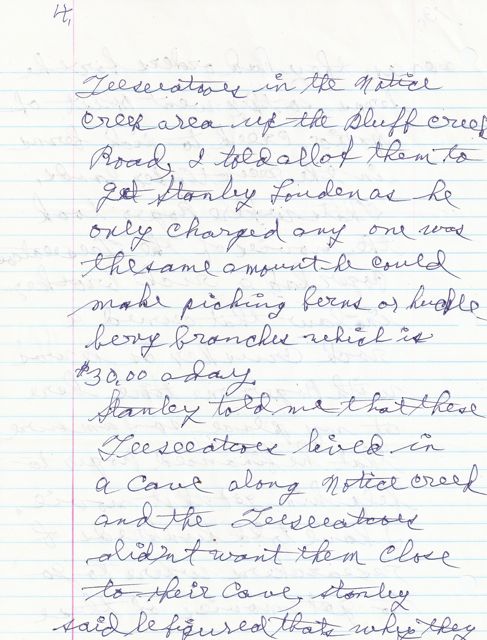 4,
Zeeseeatcoes in the Notice
creek area up the Bluff creek
Road, I told all of them to
get Stanley Louden as he
only charged any one was
the same amount he could
make picking ferns or huckle
berry branches which is
$30.00 a day.
Stanley told me that these
Zeeseeatcoes lived in
a Cave along Notice creek
and the Zeeseeatcoes
didn't want them close
to their Cave, Stanley
said he figured that's why they